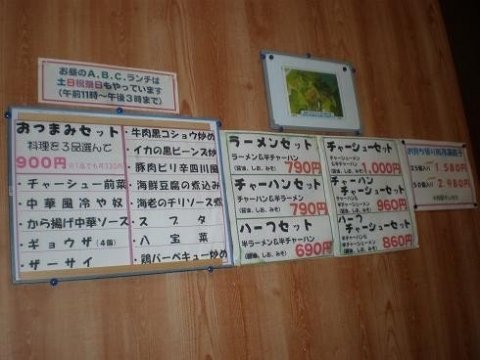 お昼のA.B.C.ランチは
土日祝祭日もやっています
(午前11時〜午後3時まで)
おつまみセット
料理を3品選んで
900円
・チャーシュー前菜
・中華風冷や奴
・から揚げ中華ソース
・ギョウザ(4個)
・ザーサイ
・牛肉黒コショウ炒め
・イカの黒ビーンズ炒め
・豚肉ピリ辛四川風
・海鮮豆腐の煮込み
・海老のチリソース煮
・スブタ
・八宝菜
・鶏バーベキュー炒め
ラーメンセット
ラーメン&半チャーハン
(醤油、しお、みそ)
790円
チャーハンセット
チャーハン&半ラーメン
(醤油、しお、みそ)
790円
ハーフセット
半ラーメン&半チャーハン
(醤油、しお、みそ)
690円
チャーシューセット
チャーシューメン&半チャーハン
(醤油、しお、みそ)
1,000円
チャーハン
チャーシューセット
960円
ハーフ
チャーシューセット
860円
1,580円
50個入り
2,980円